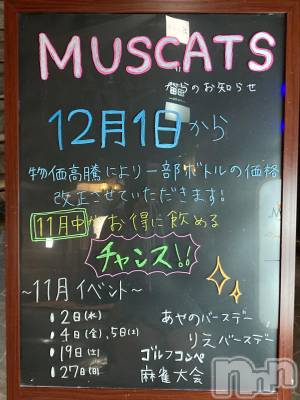 MUSCATS
からのお知らせ
12月1日から
物価高騰により一部ボトルの価格
改正させていただきます!
11月中がお得に飲める
チャンス!!
~11月イベント~
・2日(水) あやのバースデー
・4日(金),5日(土) りえバースデー
・19日(土) ゴルフコンペ
・27日(日) 麻雀大会